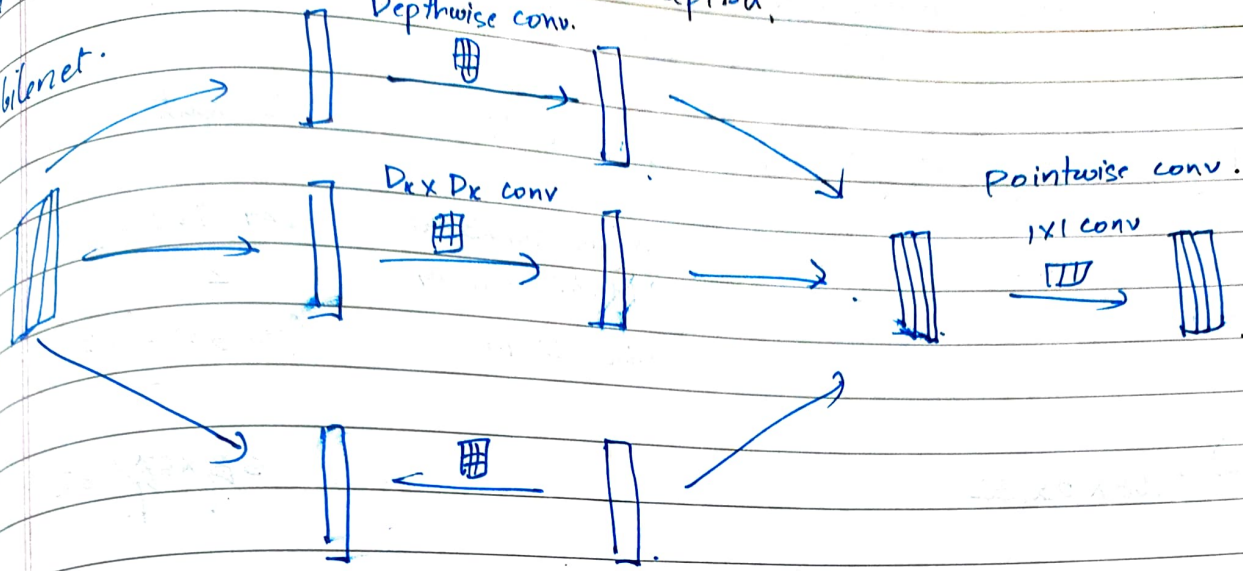 Depthwise conv.
Dk x Dk conv
pointwise conv.
1x1 conv